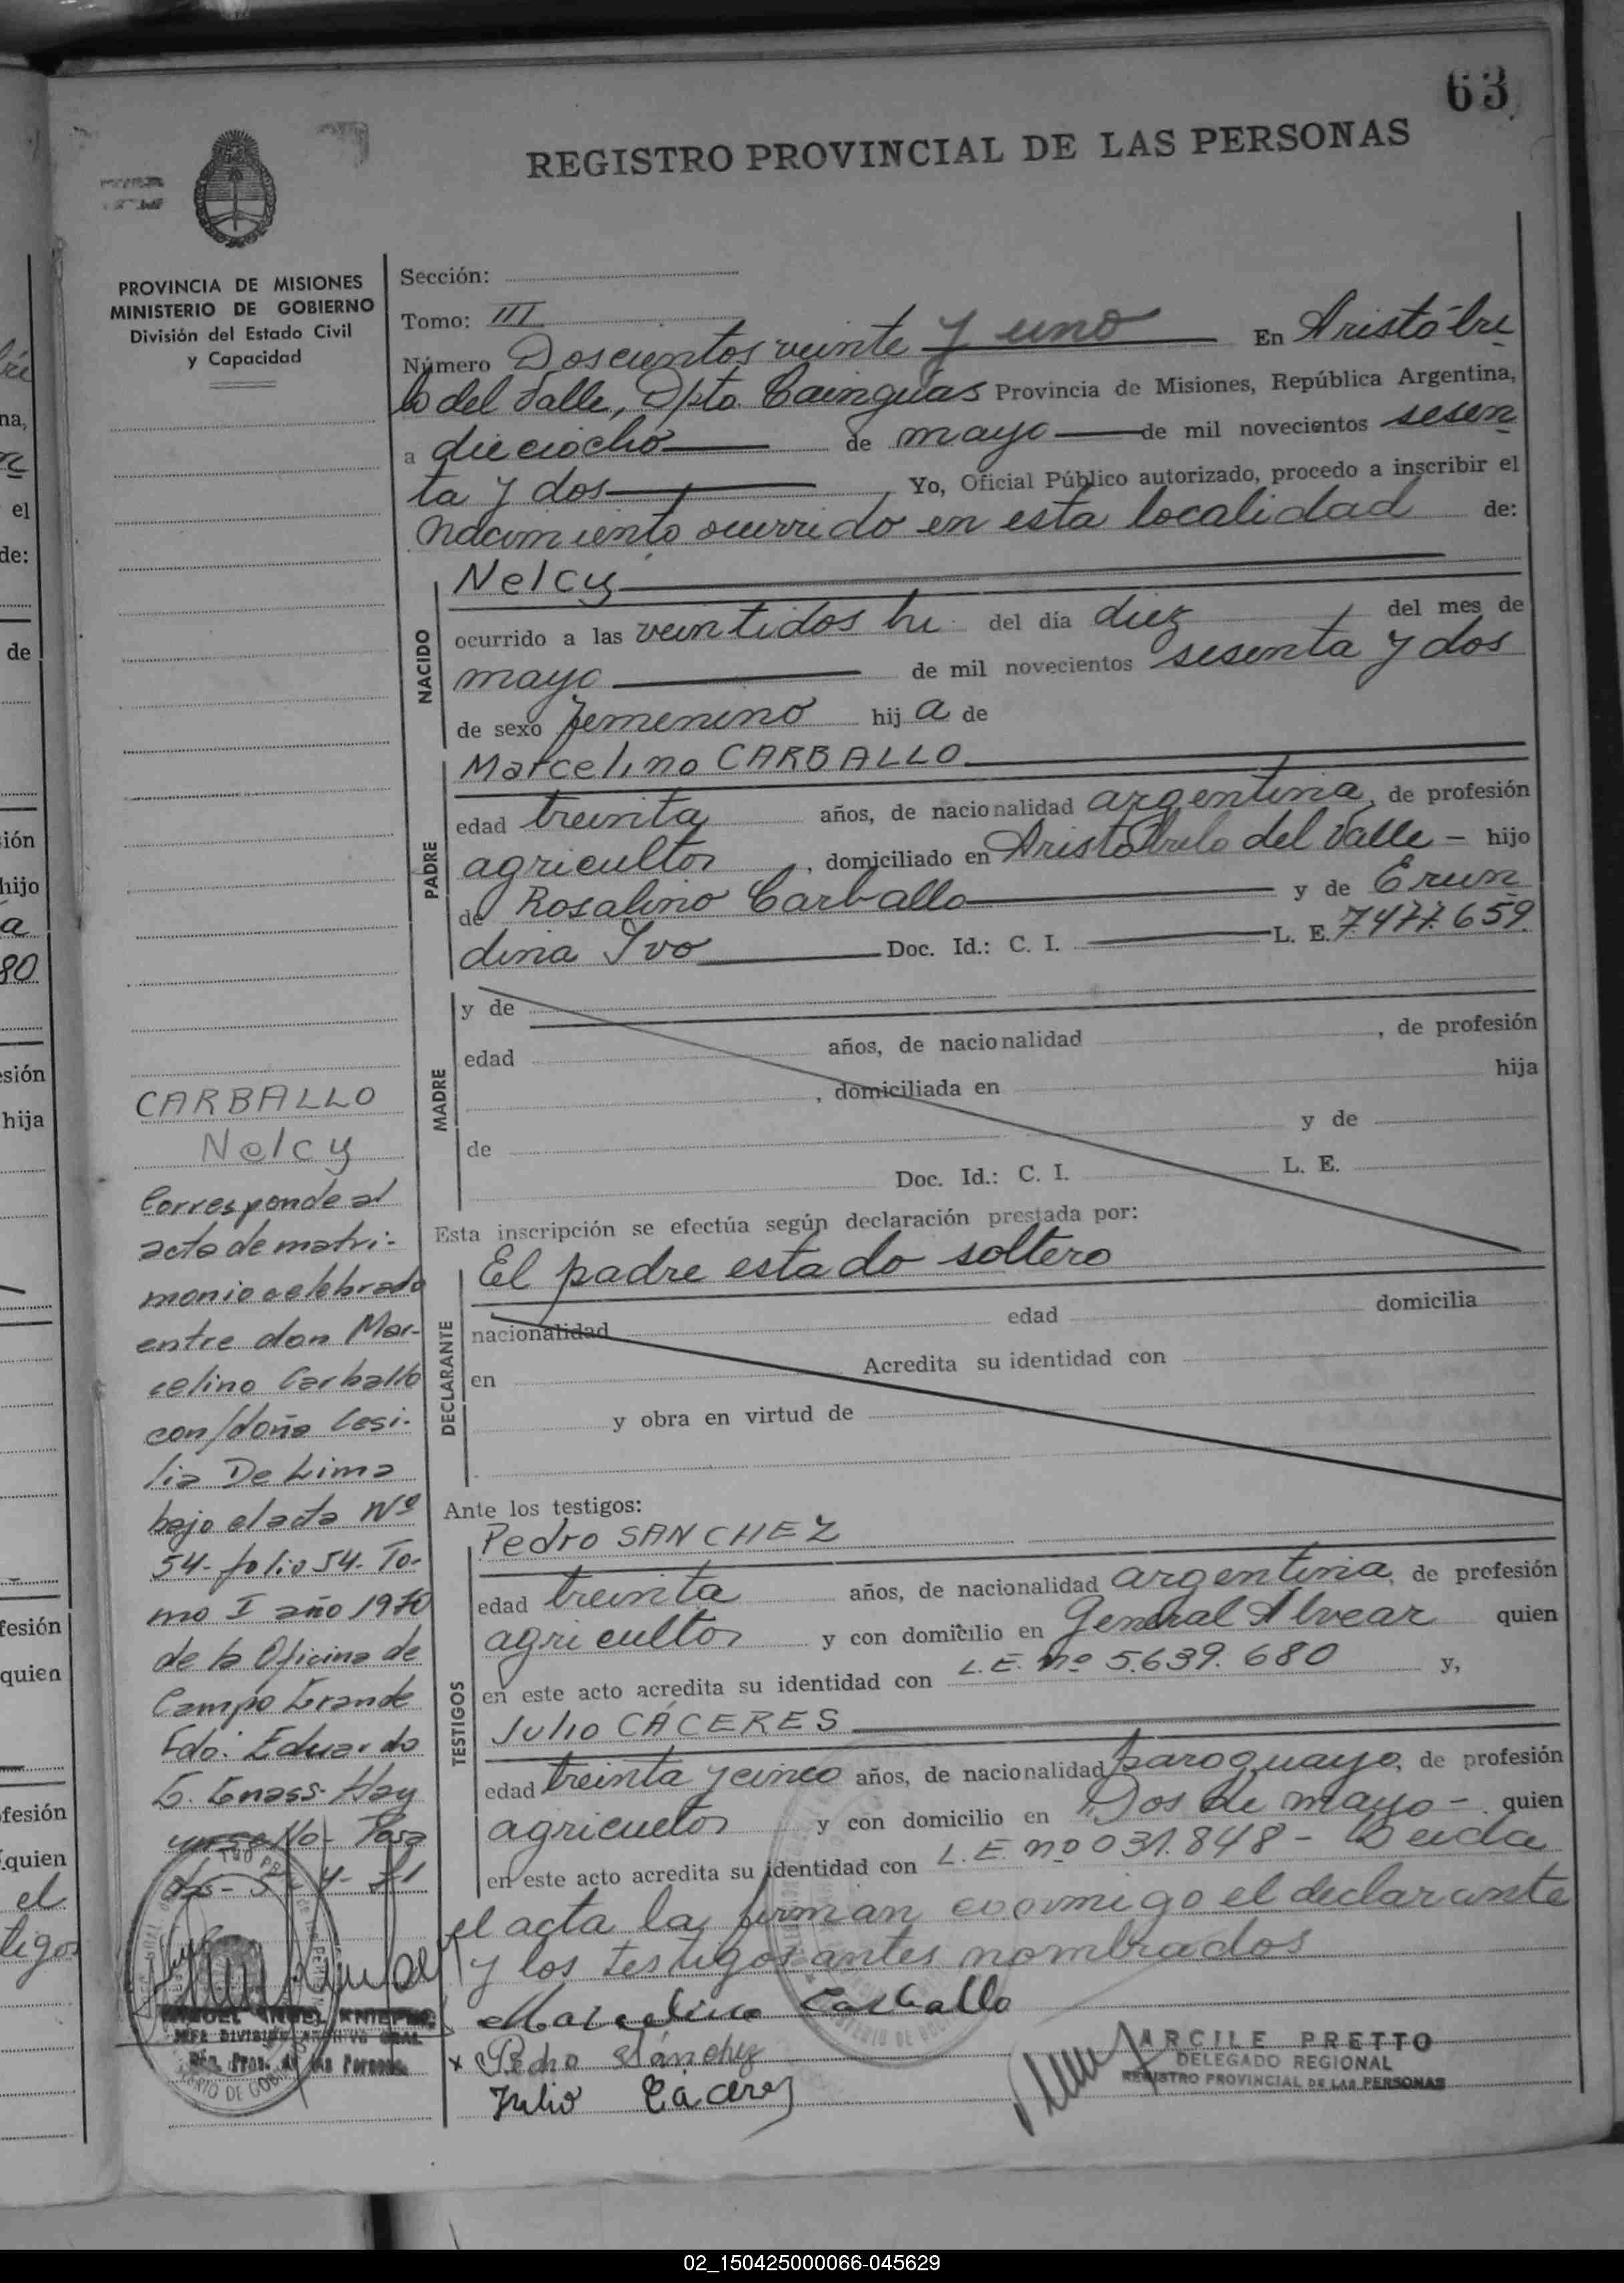 63
REGISTRO PROVINCIAL DE LAS PERSONAS
PROVINCIA DE MISIONES
MINISTERIO DE GOBIERNO
División del Estado Civil
y Capacidad
Sección:
Tomo: III
Número Doscientos veinte y uno En Aristóbu
lo del Valle, Dpto. Cainguás Provincia de Misiones, República Argentina,
a dieciocho de mayo de mil novecientos sesen
ta y dos Yo, Oficial Público autorizado, procedo a inscribir el
nacimiento ocurrido en esta localidad de:
NACIDO
Nelcy
ocurrido a las veintidos hs. del día diez del mes de
mayo de mil novecientos sesenta y dos
de sexo femenino hij a de
PADRE
Marcelino CARBALLO
edad treinta años, de nacionalidad argentina, de profesión
agricultor, domiciliado en Aristóbulo del Valle - hijo
de Rosalino Carballo y de Erun
dina Ivo Doc. Id.: C. I. L. E. 7.477.659.
MADRE
y de
edad años, de nacionalidad , de profesión
, domiciliada en hija
de y de
Doc. Id.: C. I. L. E.
Esta inscripción se efectúa según declaración prestada por:
DECLARANTE
El padre estado soltero
nacionalidad edad domicilia
en Acredita su identidad con
y obra en virtud de
Ante los testigos:
TESTIGOS
Pedro SANCHEZ
edad treinta años, de nacionalidad argentina, de profesión
agricultor y con domicilio en General Alvear quien
en este acto acredita su identidad con L.E. nº 5.639.680 y,
Julio CÁCERES
edad treinta y cinco años, de nacionalidad paraguayo, de profesión
agricultor y con domicilio en Dos de mayo - quien
en este acto acredita su identidad con L.E. nº 031.848 - Leida
el acta la firman conmigo el declarante
y los testigos antes nombrados
Marcelino Carballo
x Pedro Sánchez
Julio Cáceres
ARCILE PRETTO
DELEGADO REGIONAL
REGISTRO PROVINCIAL DE LAS PERSONAS
CARBALLO
Nelcy
Corresponde al
acta de matri-
monio celebrado
entre don Mar-
celino Carballo
con/doña Cesi-
lia De Lima
bajo el acta Nº
54- folio 54- To-
mo I año 1970
de la Oficina de
Campo Grande
Fdo: Eduardo
G. Gnass- Hay
un sello- Posa
das-
MIGUEL ANGEL
JEFE DIVISION ARCHIVO GRAL.
Reg. Prov. de las Personas
02_150425000066-045629